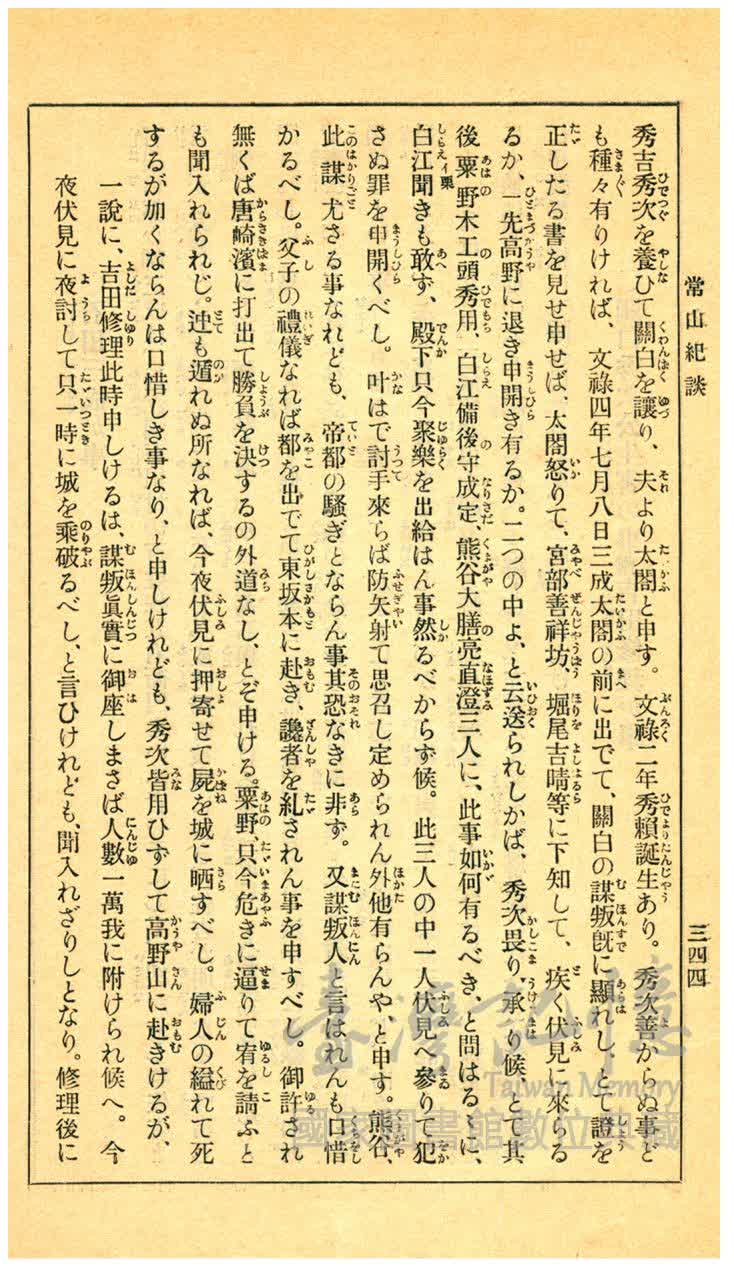 常山紀談
三四四
秀吉秀次を養ひて關白を讓り、夫より太閤と申す。文祿二年秀賴誕生あり。秀次善からぬ事ど
も種々有りければ、文祿四年七月八日三成太閤の前に出でて、關白の謀叛旣に顯れし、とて證を
正したる書を見せ申せば、太閤怒りて、宮部善祥坊、堀尾吉晴等に下知して、疾く伏見に來らる
るか、一先高野に退き申開き有るか。二つの中よ、と云送られしかば、秀次畏り承り候、とて其
後粟野木工頭秀用、白江備後守成定、熊谷大膳亮直澄三人に、此事如何有るべき、と問はるゝに、
白江聞きも敢ず、殿下只今聚樂を出給はん事然るべからず候。此三人の中一人伏見へ參りて犯
さぬ罪を申開くべし。叶はで討手來らば防矢射て思召し定められん外他有らんや、と申す。熊谷、
此謀尤さる事なれども、帝都の騷ぎとならん事其恐なきに非ず。又謀叛人と言はれんも口惜
かるべし。父子の禮儀なれば都を出でて東坂本に赴き、讒者を糺されん事を申すべし。御許され
無くば唐崎濱に打出て勝負を決するの外道なし、とぞ申ける。粟野、只今危きに逼りて宥を請ふと
も聞入れられじ。迚も遁れぬ所なれば、今夜伏見に押寄せて屍を城に晒すべし。婦人の縊れて死
するが加くならんは口惜しき事なり、と申しけれども、秀次皆用ひずして高野山に赴きけるが、
一說に、吉田修理此時申しけるは、謀叛眞實に御座しまさば人數一萬我に附けられ候へ。今
夜伏見に夜討して只一時に城を乘破るべし、と言ひけれども、聞入れざりしとなり。修理後に
臺灣記憶
Taiwan Memory
國家圖書館數位典藏